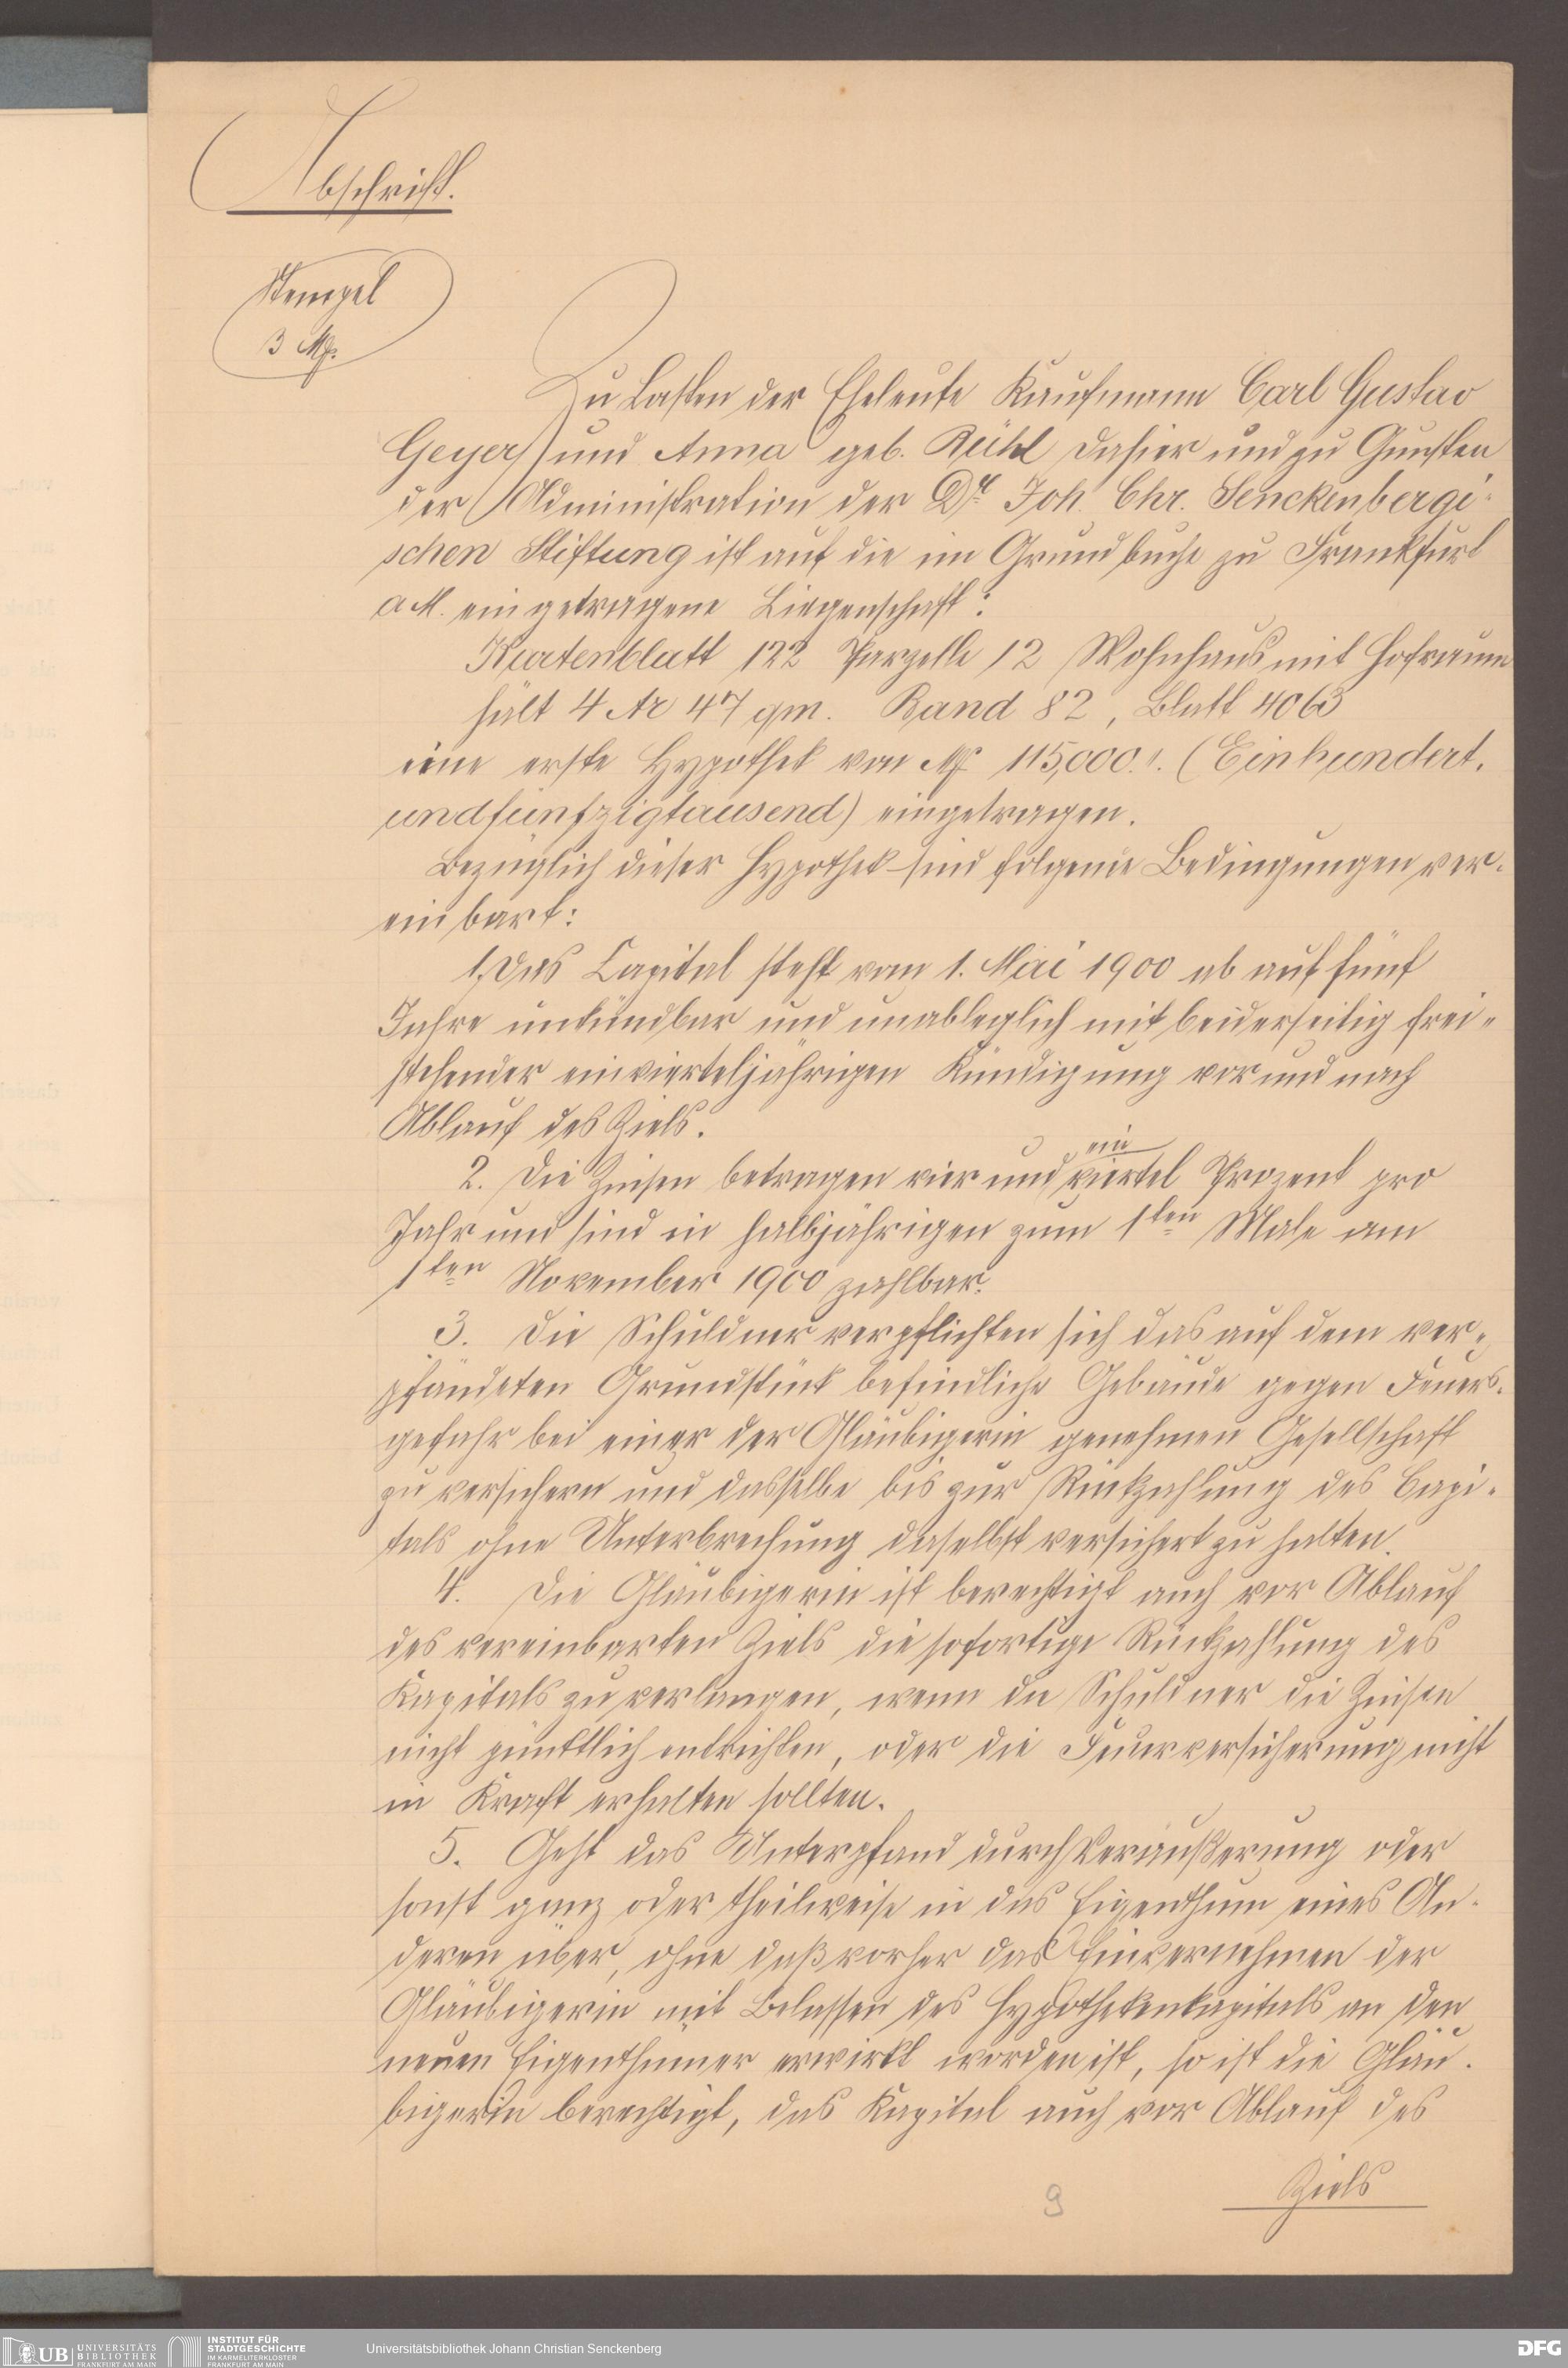 Abschrift.
Stempel
3 Mk.
Zu Lasten der Eheleute Kaufmann Carl Gustav
Geyer und Anna geb. Rühl dahier und zu Gunsten
der Administration der Dr. Joh. Chr. Senckenbergi-
schen Stiftung ist auf die im Grundbuche zu Frankfurt
a M. eingetragene Liegenschaft:
Kartenblatt 122 Parzelle 12 Wohnhaus mit Hofraum
hält 4 Ar 47 qm. Band 82, Blatt 4063
eine erste Hypothek von Mk 115,000.-. (Einhundert-
undfünfzigtausend) eingetragen.
Bezüglich dieser Hypothek sind folgende Bedingungen ver-
einbart:
1. Das Capital steht vom 1. Mai 1900 ab auf fünf
Jahre unkündbar und unableglich mit beiderseitig frei-
stehender einvierteljährigen Kündigung vor und nach
Ablauf des Ziels.
2. Die Zinsen betragen vier und ein viertel Prozent pro
Jahr und sind in halbjährigen zum 1ten Male am
1ten November 1900 zahlbar.
3. Die Schuldner verpflichten sich das auf dem ver-
pfändeten Grundstück befindliche Gebäude gegen Feuers-
gefahr bei einer der Gläubigerin genehmen Gesellschaft
zu versichern und dasselbe bis zur Rückzahlung des Capi-
tals ohne Unterbrechung daselbst versichert zu halten.
4. Die Gläubigerin ist berechtigt auch vor Ablauf
des vereinbarten Ziels die sofortige Rückzahlung des
Kapitals zu verlangen, wenn die Schuldner die Zinsen
nicht pünktlich entrichten, oder die Feuerversicherung nicht
in Kraft erhalten sollten.
5. Geht das Unterpfand durch Veräußerung oder
sonst ganz oder theilweise in das Eigenthum eines An-
deren über, ohne daß vorher das Einvernehmen der
Gläubigerin mit Belassen des Hypothekenkapitals an den
neuen Eigenthümer erwirkt worden ist, so ist die Gläu-
bigerin berechtigt, das Kapital auch vor Ablauf des
Ziels
9
UB UNIVERSITÄTS
BIBLIOTHEK
FRANKFURT AM MAIN
INSTITUT FÜR
STADTGESCHICHTE
IM KARMELITERKLOSTER
FRANKFURT AM MAIN
Universitätsbibliothek Johann Christian Senckenberg
DFG